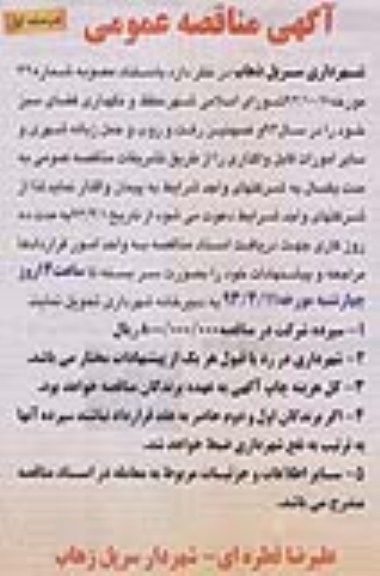 آگهی مناقصه عمومی
شهرداری سرپل ذهاب در نظر دارد باستناد مصوبه شماره
شورای اسلامی شهر حفظ و نگهداری فضای سبز
خود را در سال و همچنین رفت و روب و حمل زباله شهری و
سایر امورات قابل واگذاری را از طریق تشریفات مناقصه عمومی به
مدت یکسال به شرکتهای واجد شرایط به پیمان واگذار نماید لذا از
شرکتهای واجد شرایط دعوت می شود از تاریخ به مدت ده
روز کاری جهت دریافت اسناد مناقصه به واحد امور قراردادها
مراجعه و پیشنهادات خود را بصورت سر بسته تا ساعت روز
چهارشنبه مورخه به دبیرخانه شهرداری تحویل نمایند.
۱- سپرده شرکت در مناقصه ریال
۲- شهرداری در رد یا قبول هر یک از پیشنهادات مختار می باشد.
۳- کل هزینه چاپ آگهی به عهده برندگان مناقصه خواهد بود.
۴- اگر برندگان اول و دوم حاضر به عقد قرارداد نباشند سپرده آنها
به ترتیب به نفع شهرداری ضبط خواهد شد.
۵- سایر اطلاعات و جزئیات مربوط به معامله در اسناد مناقصه
مندرج می باشد.
علیرضا قطره ای - شهردار سرپل زهاب